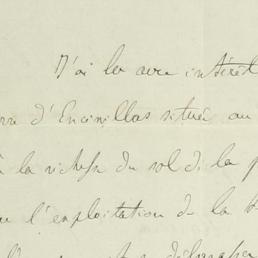 J'ai lu avec intérêt
d'Encinillas située au
à la richesse du sol de la p
l'exploitation de la